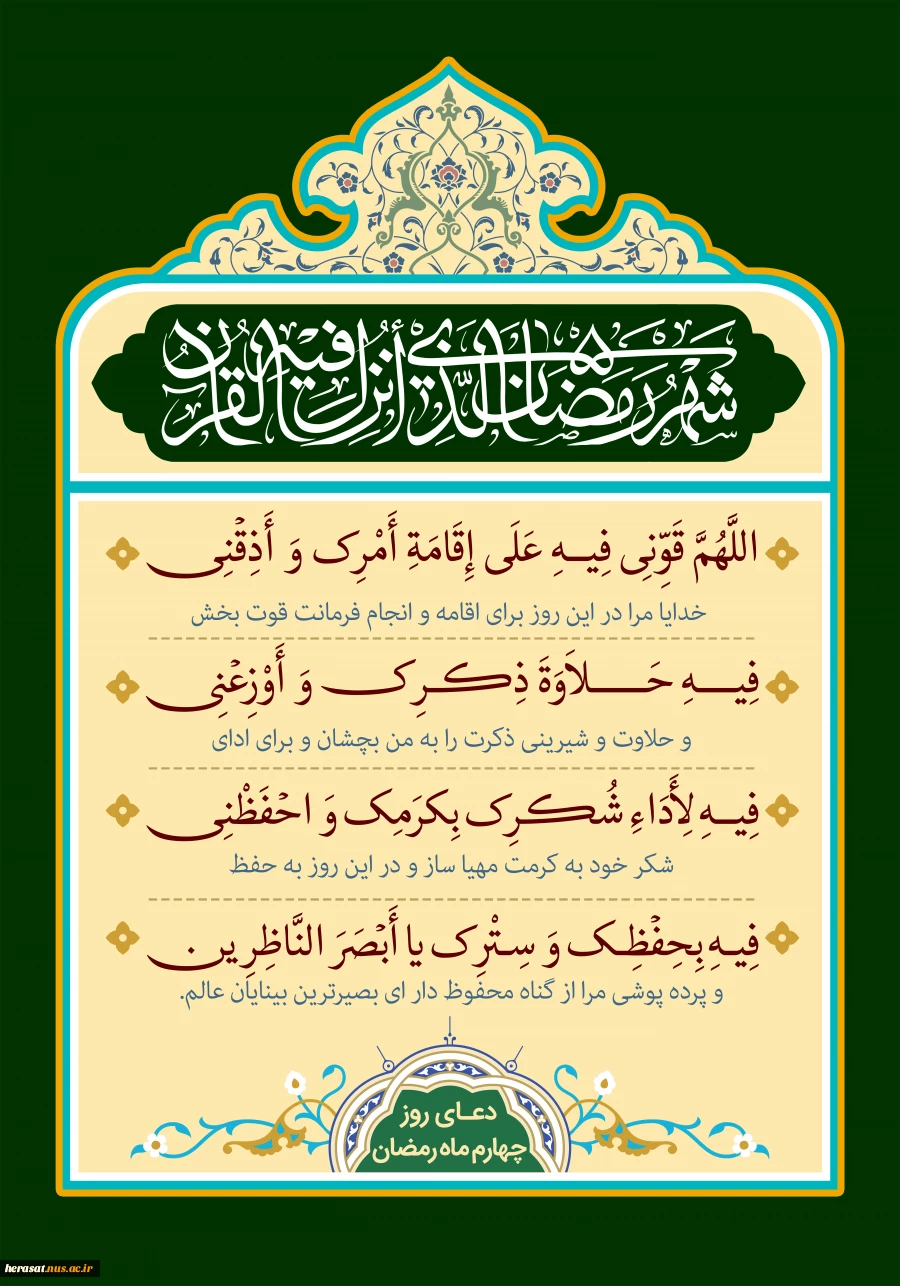 شَهْرُ رَمَضَانَ الَّذِي أُنْزِلَ فِيهِ الْقُرْآنُ
اللَّهُمَّ قَوِّنِی فِیهِ عَلَی إِقَامَةِ أَمْرِک وَ أَذِقْنِی
خدایا مرا در این روز برای اقامه و انجام فرمانت قوت بخش
فِیهِ حَلاَوَةَ ذِکرِک وَ أَوْزِعْنِی
و حلاوت و شیرینی ذکرت را به من بچشان و برای ادای
فِیهِ لِأَدَاءِ شُکرِک بِکرَمِک وَ احْفَظْنِی
شکر خود به کرمت مهیا ساز و در این روز به حفظ
فِیهِ بِحِفْظِک وَ سِتْرِک یا أَبْصَرَ النَّاظِرِین.
و پرده پوشی مرا از گناه محفوظ دار ای بصیرترین بینایان عالم.
دعای روز
چهارم ماه رمضان
herasat.nus.ac.ir